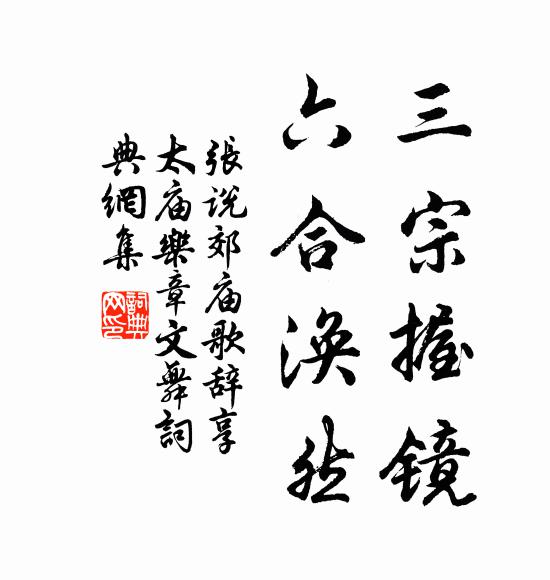 三宗握镜
六合涣然
張说郊庙歌辞享
太庙樂章文舞詞
典網集
詞典网印